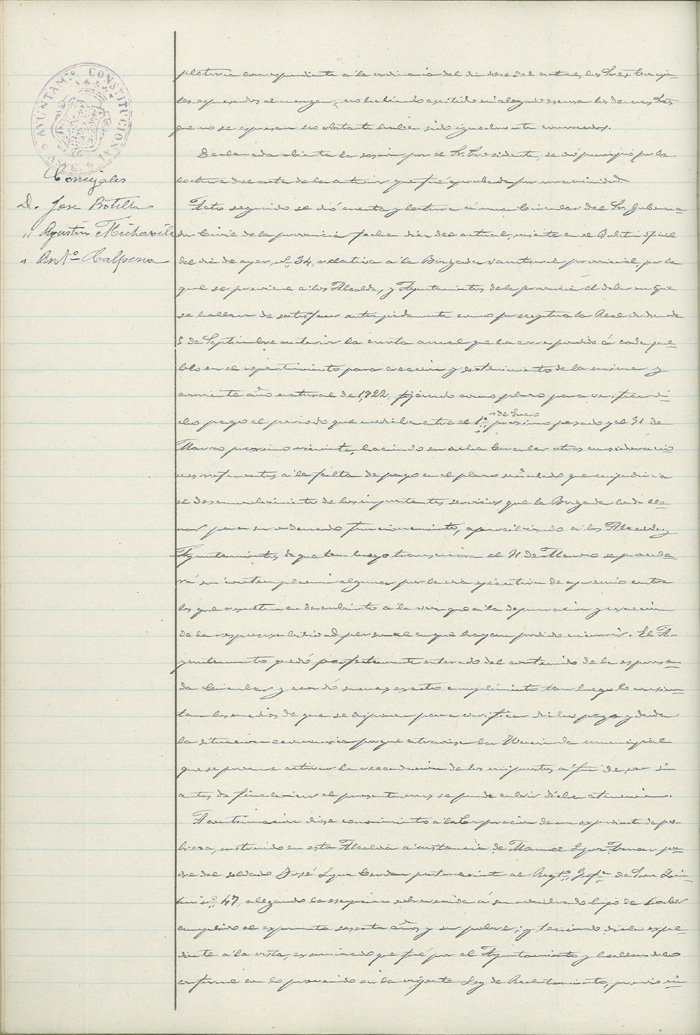 AYUNTAM. CONSTITUCIONAL
Concejales
D. Jose Botella
" Agustín Michavila
" Ant.º Calpena
pletoria correspondiente á la ordinaria del dia doce del actual, los Sres Conceja-
les expresados al margen, no habiendo asistido ni alegado escusa los demas Sres
que no se expresan no obstante haber sido igualmente convocados.
Declarada abierta la sesion por el Sr. Presidente, se dió principio por la
lectura del acta de la anterior que fué aprobada por unanimidad.
Acto seguido se dió cuenta y lectura á una Circular del Sr. Goberna-
dor Civil de la provincia fecha diez del actual, inserta en el Boletin Oficial
del dia de ayer, nº 34, relativa á la Brigada sanitaria provincial, por la
que se previene á los Alcaldes y Ayuntamientos de la provincia el deber en que
se hallan de satisfacer anticipadamente como preceptua la Real orden de
5 de Septiembre anterior la cuota anual que ha correspondido á cada pue-
blo en el repartimiento para creacion y sostenimiento de la misma y
corriente año natural de 1922, fijando como plazo para verificar di-
cho pago el periodo que media entre el 1º de Enero proximo pasado y el 31 de
Marzo proximo viniente, haciendo en dicha Circular otras consideracio-
nes referentes á la falta de pago en el plazo señalado que perjudicaria
el desenvolvimiento de los importantes servicios que la Brigada ha de lle-
nar para su ordenado funcionamiento, apercibiendo á los Alcaldes y
Ayuntamientos de que tan luego transcurra el 31 de Marzo se procede-
rá sin contemplacion alguna por la via ejecutiva de apremio contra
los que resulten en descubierto á la vez que á la depuracion y exaccion
de la responsabilidad personal en que hayan podido incurrir. El A-
yuntamiento quedó perfectamente enterado del contenido de la expresa-
da Circular y acordó su mas exacto cumplimiento tan luego lo consien-
tan los medios de que se dispone para verificar dicho pago y dada
la situacion economica porque atraviesa la Hacienda municipal
que se procure activar la recaudacion de los impuestos á fin de
antes de finalizar el presente mes se pueda cubrir dicha atencion.
A continuacion dióse conocimiento á la Corporacion de un expediente de po-
breza, instruido en esta Alcaldia á instancia de Manuel pa-
dre del soldado José Cerdan perteneciente al Regtº Infª de San Quin-
tin nº 47, alegando la excepcion sobrevenida á su mencionado hijo de haber
cumplido el exponente sesenta años y ser pobre; y teniendo dicho expe-
diente á la vista, examinado que fué por el Ayuntamiento y hallandolo
conforme con lo prevenido en la vigente Ley de Reclutamiento, previo in-